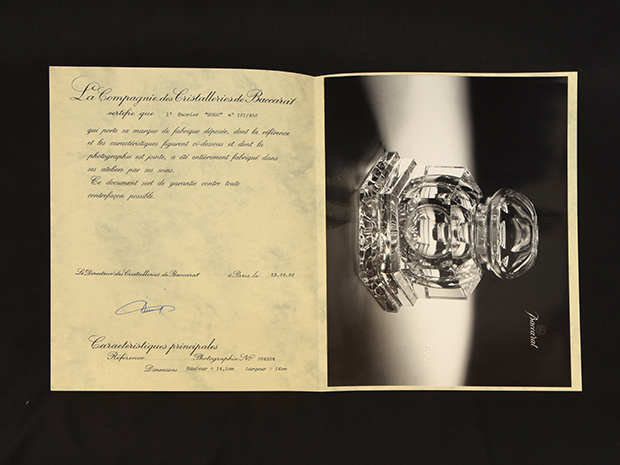 La Compagnie des Cristalleries de Baccarat
certifie que l' Encrier "2000" n° 181/450
qui porte sa marque de fabrique déposée, dont la référence
et les caractéristiques figurent ci-dessous et dont la
photographie est jointe, a été entièrement fabriqué dans
ses ateliers par ses soins.
Ce document sert de garantie contre toute
contrefaçon possible.
Le Directeur des Cristalleries de Baccarat à Paris, le
Caractéristiques principales
Référence Photographie N°
Dimensions Hauteur = 14,5cm Largeur = 16cm
Baccarat